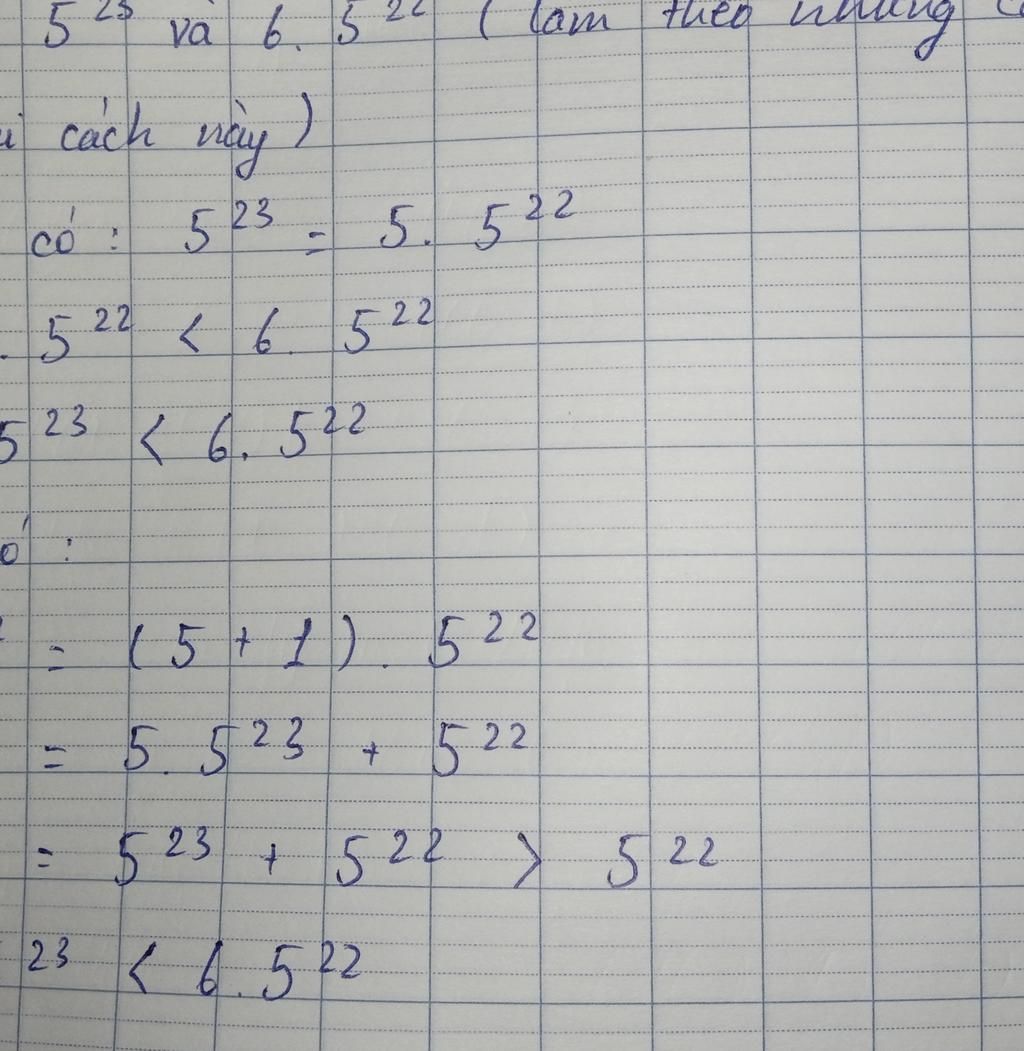 5²³ và 6. 5²² ( làm theo những
cách này )
có : 5²³ = 5. 5²²
. 5²² < 6. 5²²
5²³ < 6. 5²²
:
= ( 5 + 1 ) . 5²²
= 5. 5²³ + 5²²
= 5²³ + 5²² > 5²²
²³ < 6. 5²²